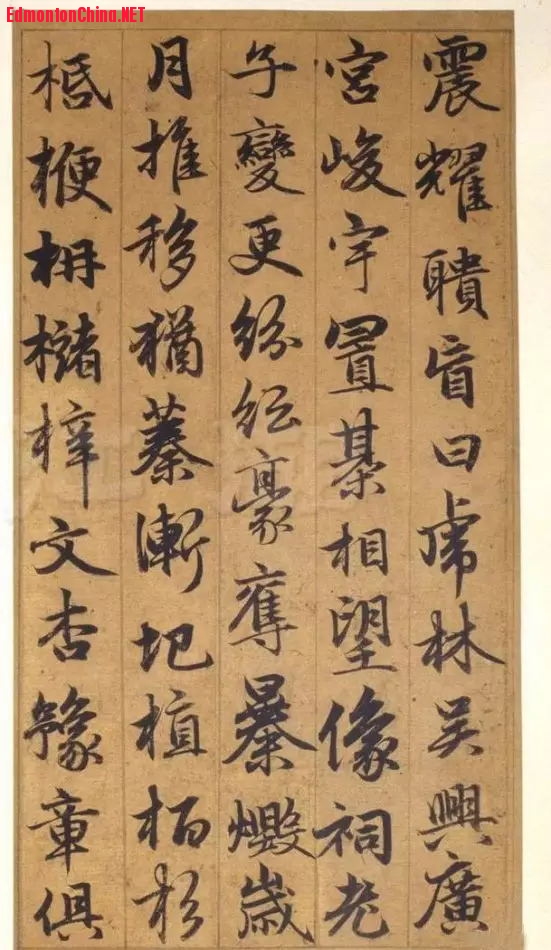 EdmontonChina.NET
震耀聵盲曰虎林吳興廣
宮峻宇置棊相望像祠老
子變更紛紜豪奪暴燬歲
月推移猶蓁漸圯植栢杉
柢楩枏櫧梓文杏豫章俱